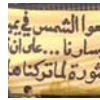 وا الشمس في يم
سارنا ... على ان
ثورة لما تركناها